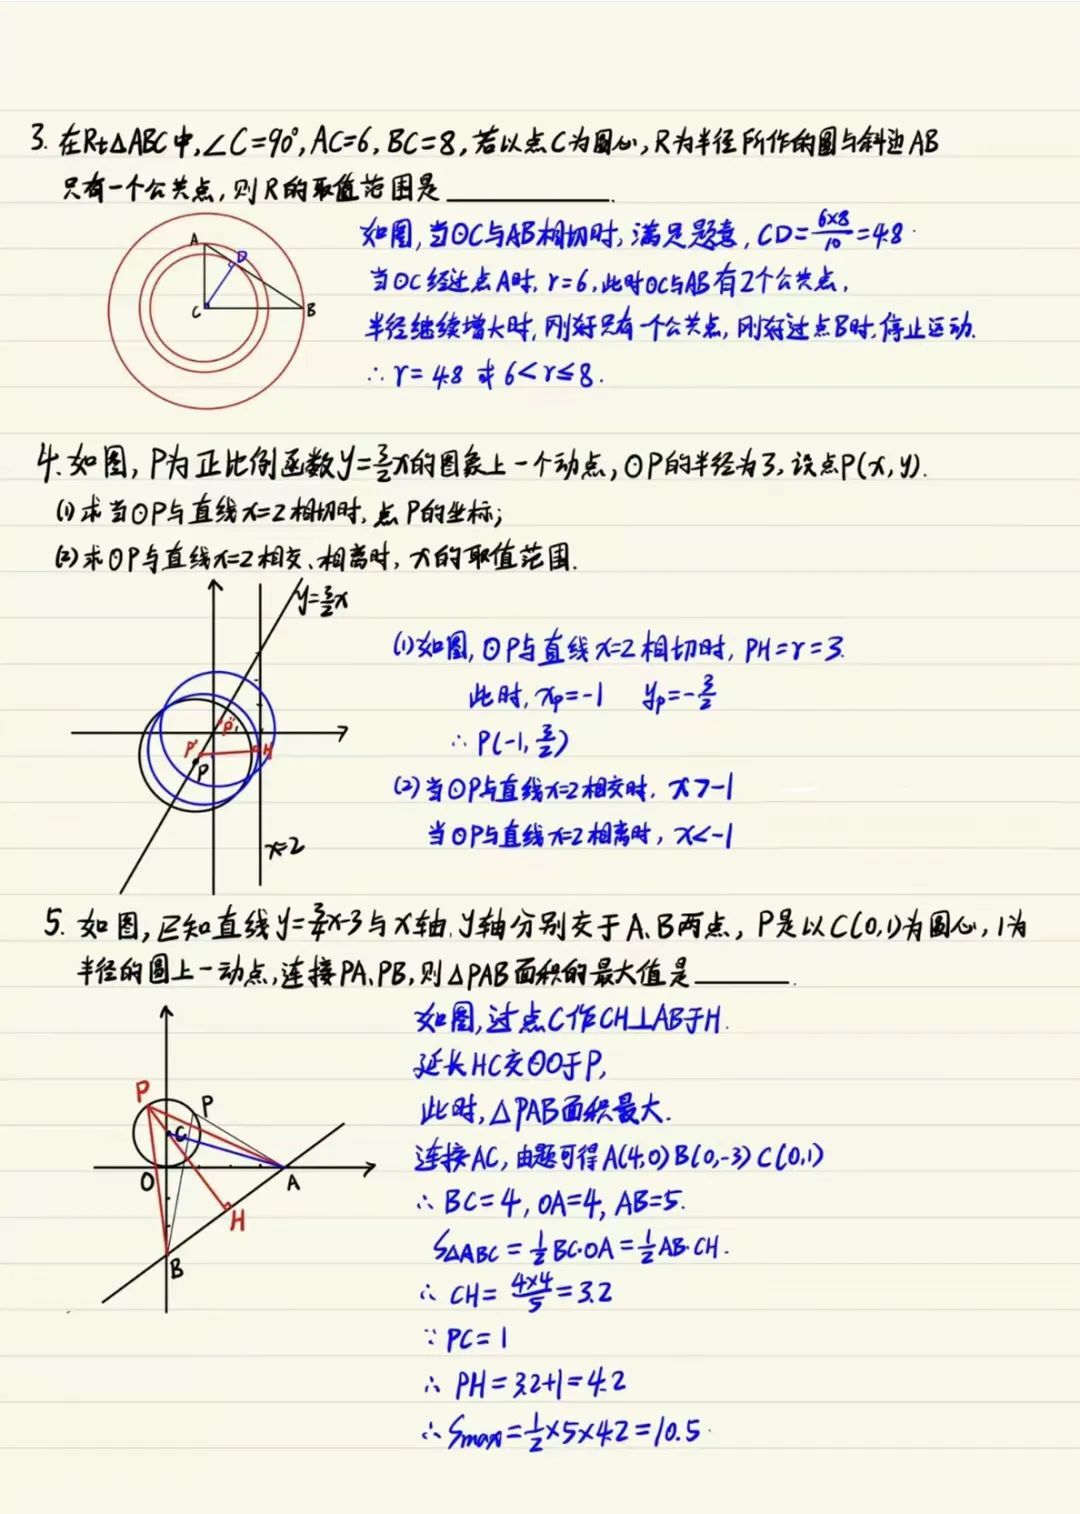 3. 在Rt△ABC中,∠C=90°,AC=6,BC=8,若以点C为圆心,R为半径所作的圆与斜边AB
只有一个公共点,则R的取值范围是________.
A
D
C
B
如图,当⊙C与AB相切时,满足题意,CD=6×8/10=4.8.
当⊙C经过点A时,r=6,此时⊙C与AB有2个公共点,
半径继续增大时,刚好只有一个公共点,刚好过点B时,停止运动.
∴r=4.8或6<r≤8.
4.如图,P为正比例函数y=3/2x的图象上一个动点,⊙P的半径为3,设点P(x,y).
(1)求当⊙P与直线x=2相切时,点P的坐标;
(2)求⊙P与直线x=2相交、相离时,x的取值范围.
y=3/2x
P''
P'
H
P
x=2
(1)如图,⊙P与直线x=2相切时,PH=r=3.
此时,xp=-1 yp=-3/2
∴P(-1,3/2)
(2)当⊙P与直线x=2相交时,x>-1
当⊙P与直线x=2相离时,x<-1
5. 如图,已知直线y=3/4x-3与x轴、y轴分别交于A、B两点,P是以C(0,1)为圆心,1为
半径的圆上一动点,连接PA、PB,则△PAB面积的最大值是________.
P
P
C
O
A
H
B
如图,过点C作CH⊥AB于H.
延长HC交⊙O于P,
此时,△PAB面积最大.
连接AC,由题可得A(4,0)B(0,-3)C(0,1)
∴BC=4,OA=4,AB=5.
S△ABC=1/2BC·OA=1/2AB·CH.
∴CH=4×4/5=3.2
∵PC=1
∴PH=3.2+1=4.2
∴Smax=1/2×5×4.2=10.5.